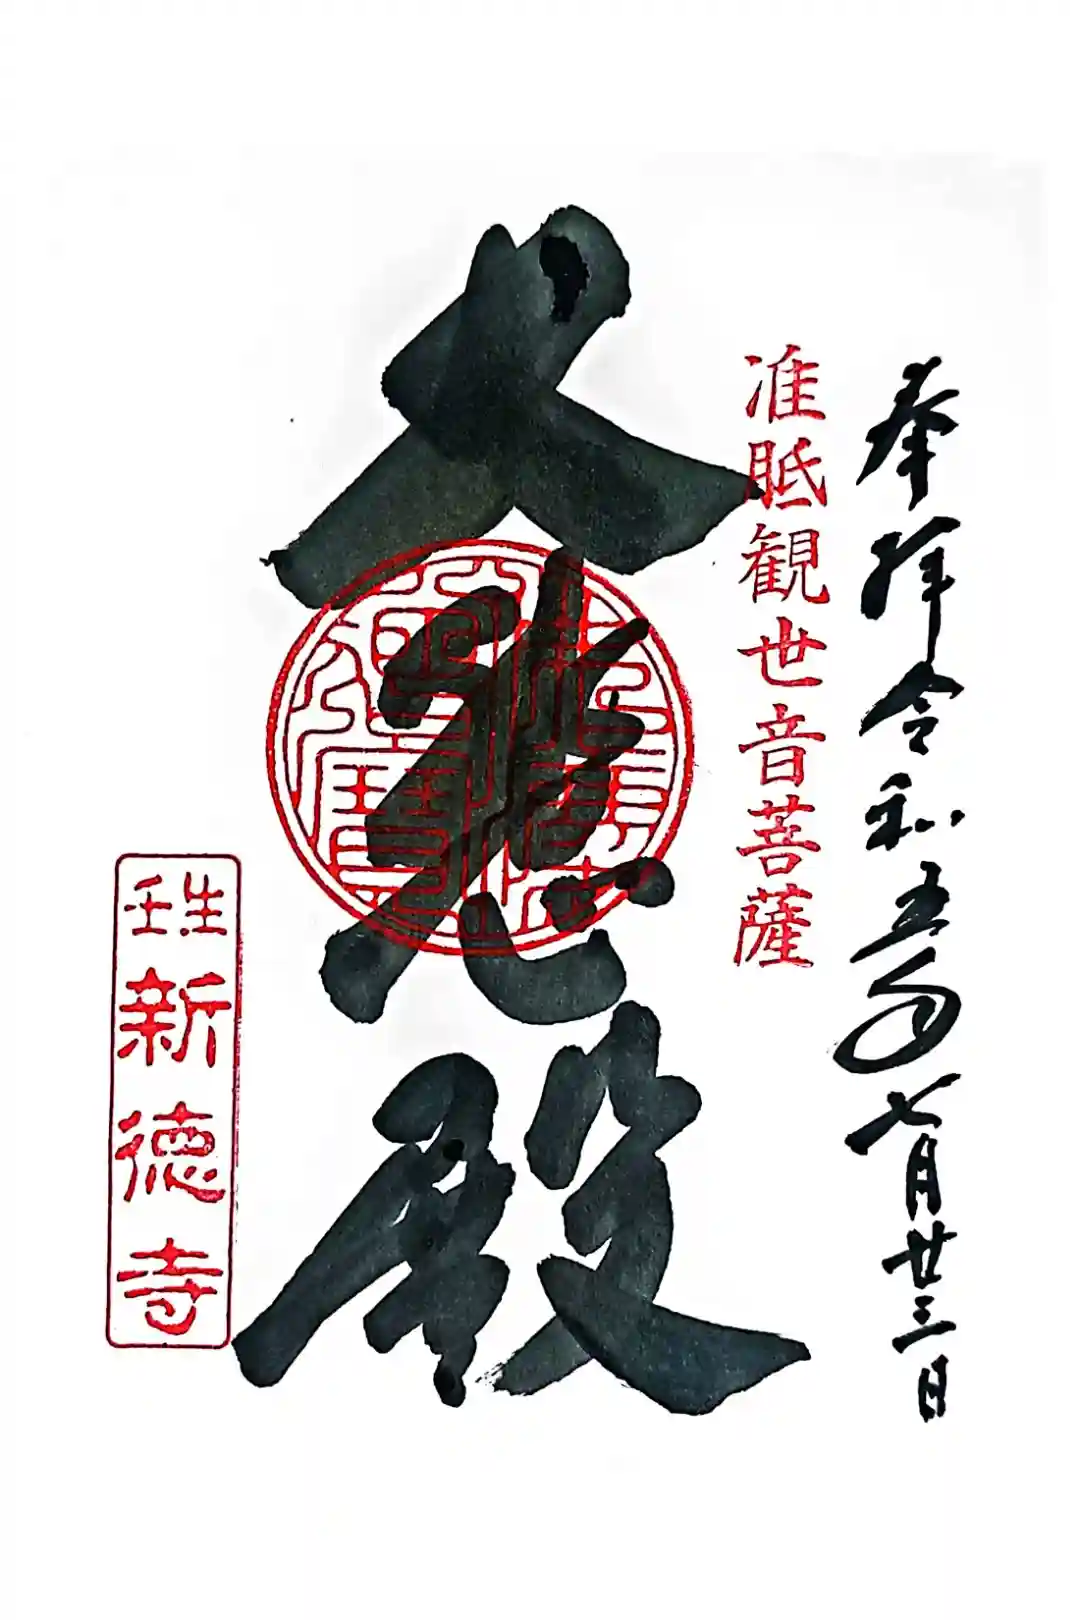 奉拝令和五年七月廿三日
准胝観世音菩薩
大悲殿
壬生
新徳寺